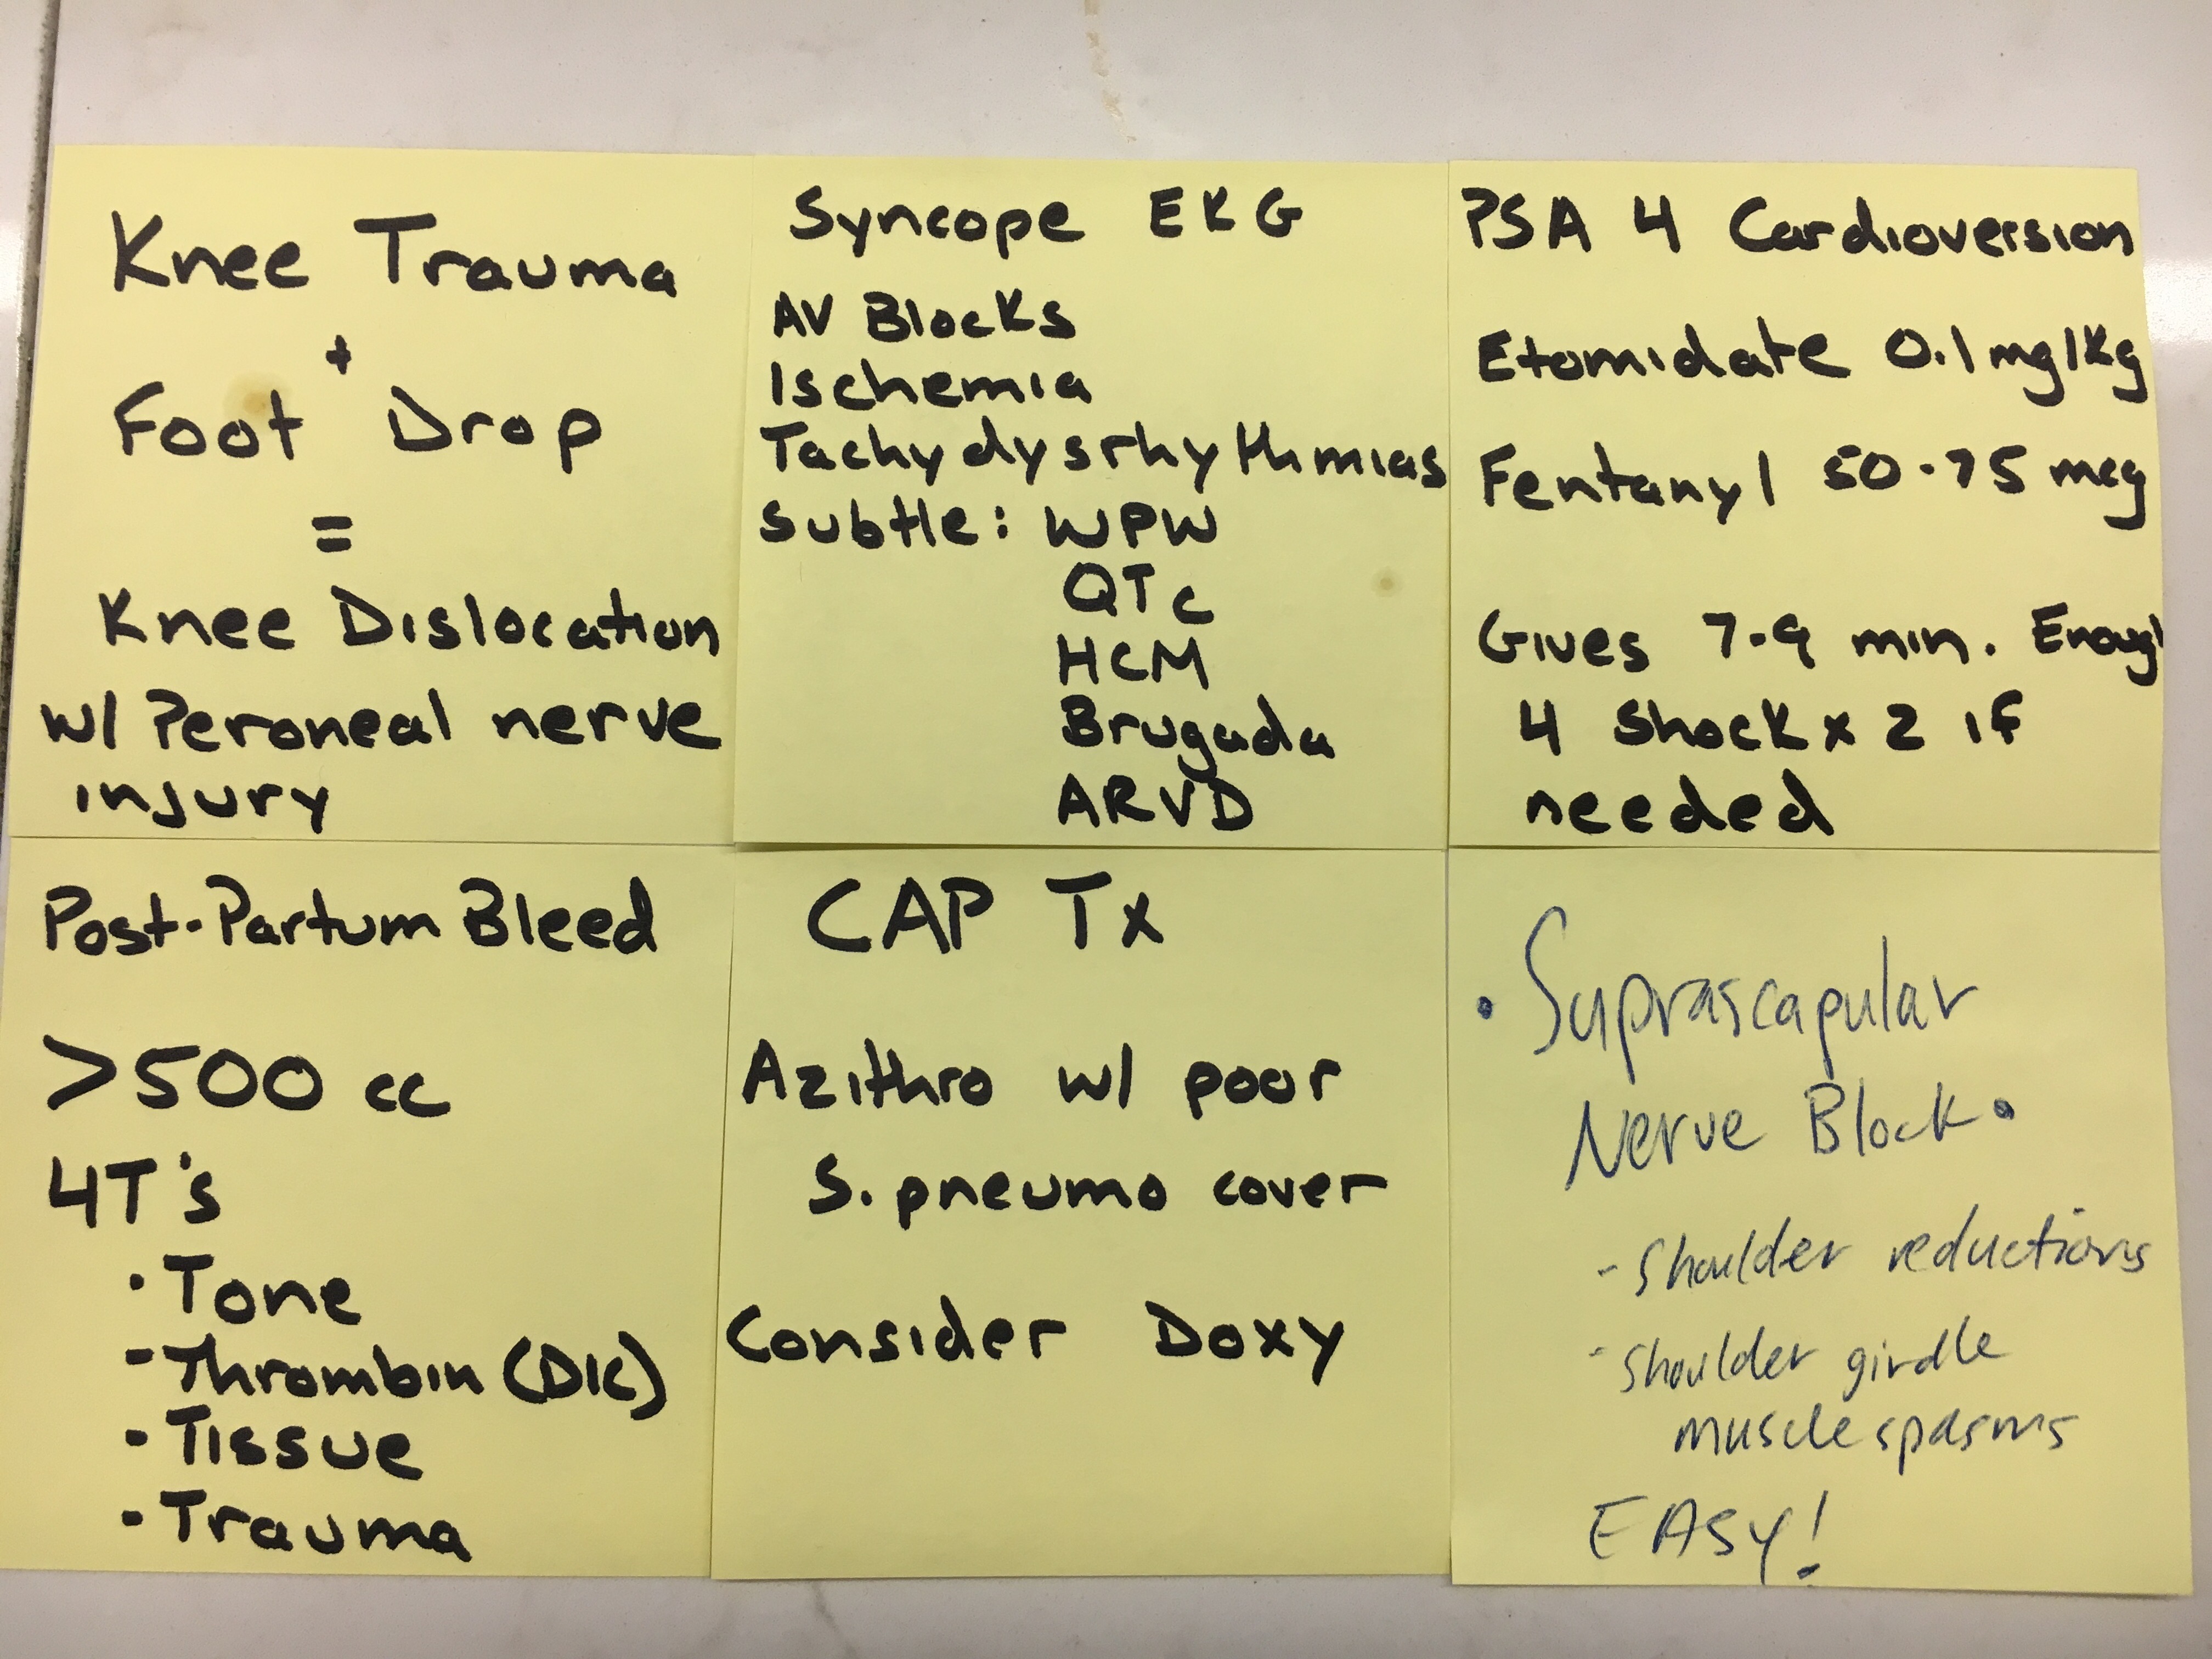 Knee Trauma
+
Foot Drop
=
Knee Dislocation
w/ Peroneal nerve
injury
Syncope EKG
AV Blocks
Ischemia
Tachydysrhythmias
Subtle: WPW
QTc
HCM
Brugada
ARVD
PSA 4 Cardioversion
Etomidate 0.1 mg/kg
Fentanyl 50-75 mcg
Gives 7-9 min. Enough
4 Shock x 2 if
needed
Post-Partum Bleed
>500 cc
4T's
· Tone
- Thrombin (DIC)
- Tissue
- Trauma
CAP Tx
Azithro w/ poor
S. pneumo cover
Consider Doxy
· Suprascapular
Nerve Block ·
- Shoulder reductions
- Shoulder girdle
muscle spasms
EASY!